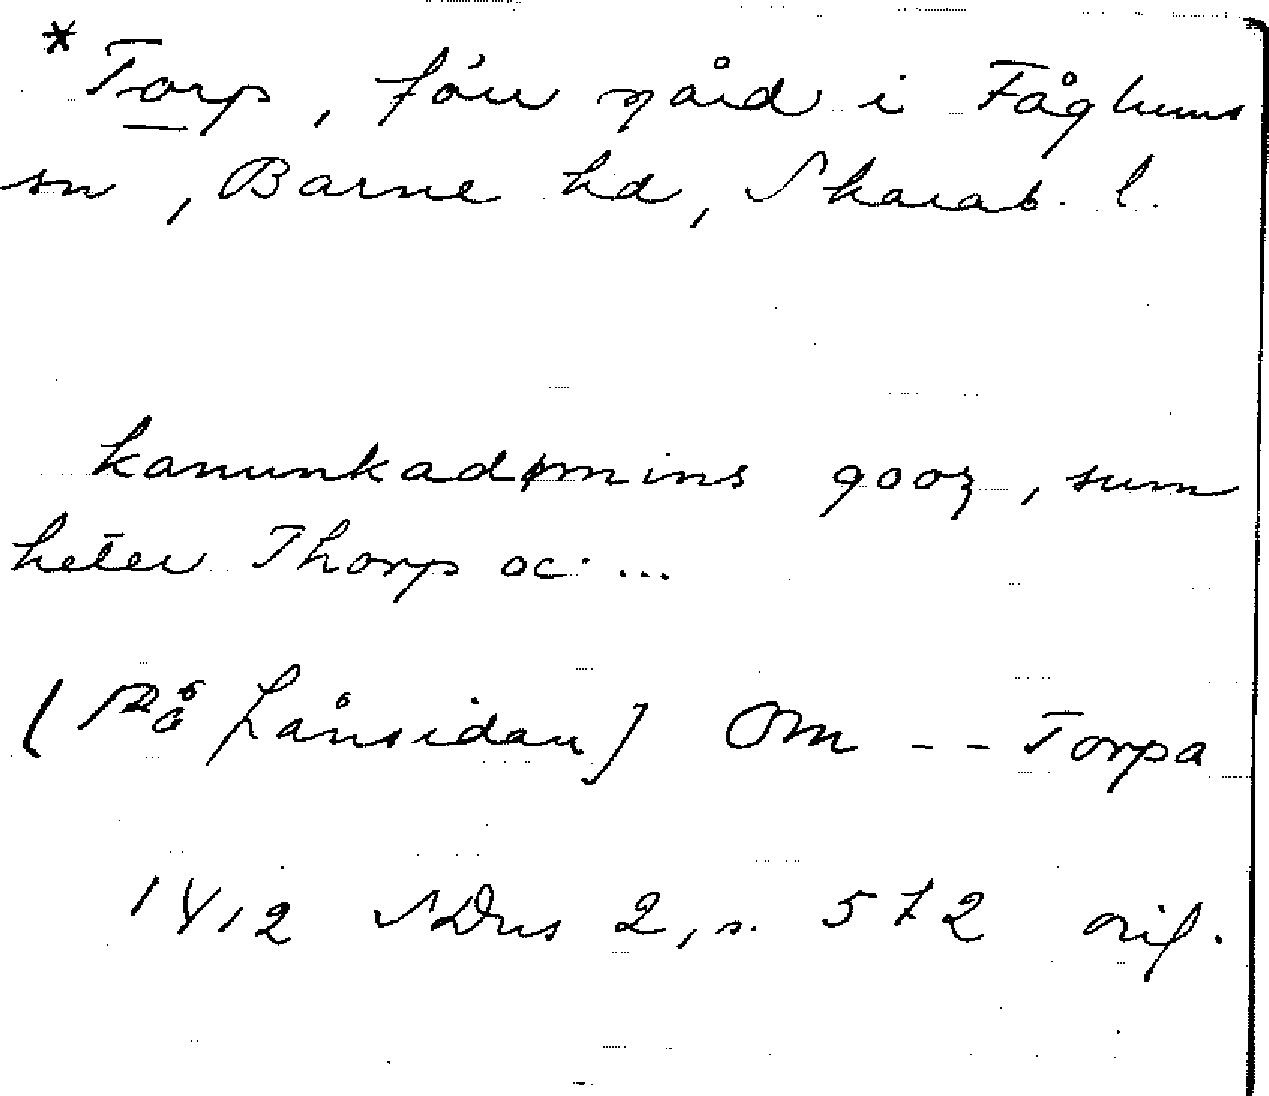 *Torp, förr gård i Fåglums
sn, Barne hd, Skarab. l.
kanunkadømins gooz, sum
heter Thorp oc ...
(På frånsidan) Om -- Torpa
1412 SDns 2, s. 572 orig.